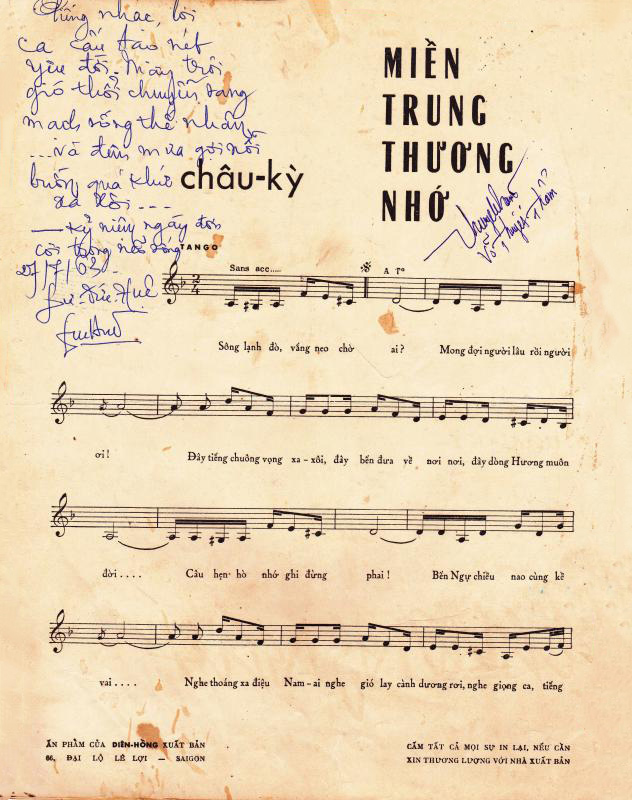 Từng nhạc, lời
ca cấu tạo nét
yêu đời. Mây trôi
gió thổi chuyển sang
mạch sống thế nhân
...và đêm mưa gợi nỗi
buồn quá khứ
xa xôi ---
— Kỷ niệm ngày đến
27/7/03.
MIỀN
TRUNG
THƯƠNG
NHỚ
châu-kỳ
TANGO
Sans acc.....
A Tº
Sông lạnh đò, vắng nẻo chờ ai? Mong đợi người lâu rồi người
ơi! Đây tiếng chuông vọng xa-xôi, đây bến đưa về nơi nơi, đây dòng Hương muôn
đời.... Câu hẹn-hò nhớ ghi đừng phai! Bến Ngự chiều nao cùng kề
vai.... Nghe thoáng xa điệu Nam-ai nghe gió lay cành dương rơi, nghe giọng ca, tiếng
ẤN PHẨM CỦA DIÊN-HỒNG XUẤT BẢN
66, ĐẠI LỘ LÊ LỢI — SAIGON
CẤM TẤT CẢ MỌI SỰ IN LẠI, NẾU CẦN
XIN THƯƠNG LƯỢNG VỚI NHÀ XUẤT BẢN